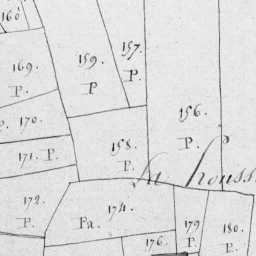 160
159.
P
157.
P.
169.
P.
156.
P.
P. 170.
158.
P.
171. P.
La Houss
172.
P.
174.
Pa.
179
P.
180.
P.
176.